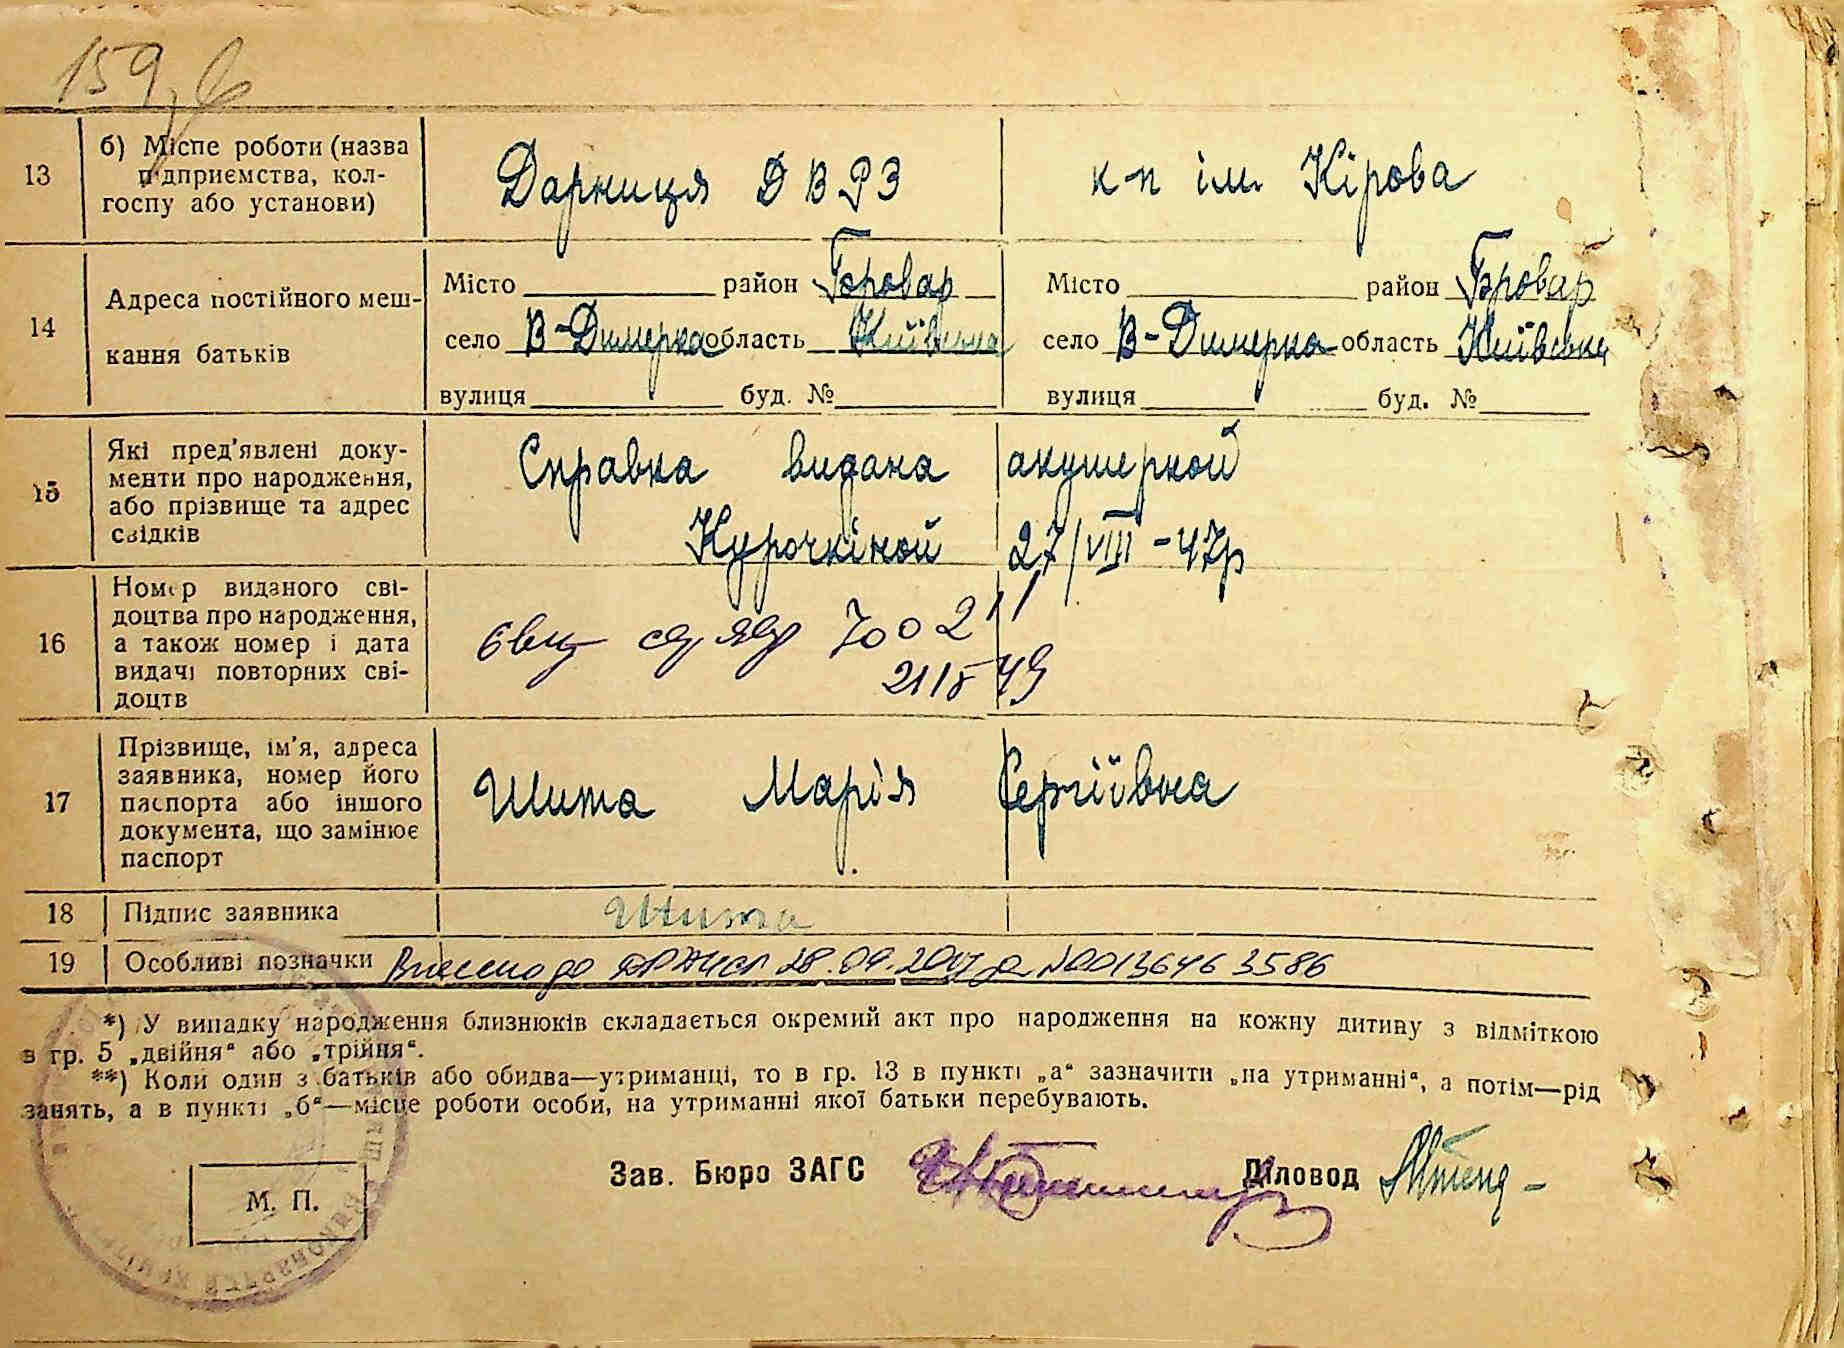 159
13 б) Місце роботи (назва підприємства, колгоспу або установи) Дарниця ДВРЗ к-п ім. Кірова
14 Адреса постійного мешкання батьків
Місто район Бровар Місто район Бровар
село В-Димерка область Київська село В-Димерка область Київська
вулиця буд. № вулиця буд. №
15 Які пред'явлені документи про народження, або прізвище та адрес свідків
Справка видана акушеркой
Курочкіной 27/VIII-47р
16 Номер виданого свідоцтва про народження, а також номер і дата видачі повторних свідоцтв
17 Прізвище, ім'я, адреса заявника, номер його паспорта або іншого документа, що замінює паспорт
Шита Марія Сергіївна
18 Підпис заявника Шита
19 Особливі позначки Внесено до 28.09.2017 р №00136463586
*) У випадку народження близнюків складається окремий акт про народження на кожну дитину з відміткою
в гр. 5 „двійня“ або „трійня“.
**) Коли один з батьків або обидва—утриманці, то в гр. 13 в пункті „а“ зазначити „на утриманні“, а потім—рід
занять, а в пункті „б“—місце роботи особи, на утриманні якої батьки перебувають.
Зав. Бюро ЗАГС Діловод
М. П.